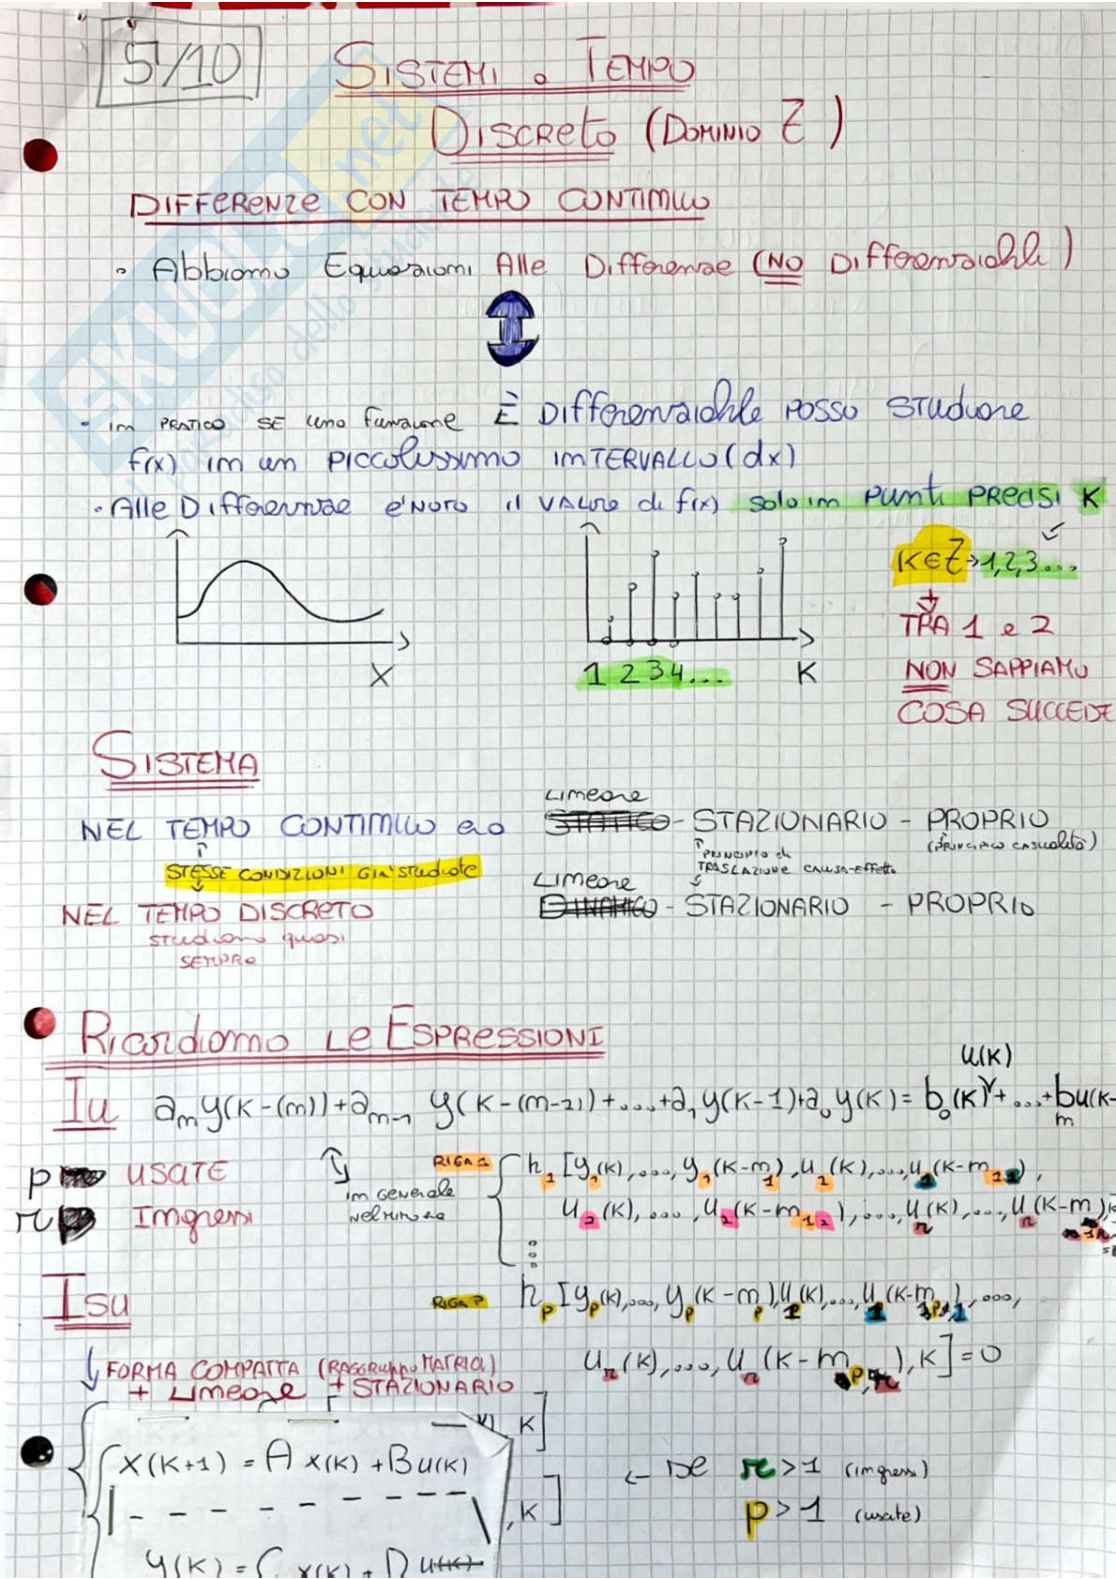 5/10
SISTEMI a TEMPO
DISCRETO (DOMINIO Z)
DIFFERENZE CON TEMPO CONTINUO
• Abbiamo Equazioni Alle Differenze (NO Differenziabili)
• in PRATICA SE una funzione È Differenziabile POSSO STUDIARE
f(x) in un PICCOLISSIMO INTERVALLO (dx)
• Alle Differenze è NOTO il VALORE di f(x) solo in PUNTI PRECISI K
K∈Z → 1,2,3...
TRA 1 e 2
NON SAPPIAMO
COSA SUCCEDE
X
1 2 3 4...
K
SISTEMA
LINEARE
NEL TEMPO CONTINUO è o STATICO - STAZIONARIO - PROPRIO
(PRINCIPIO CASUALITÀ)
PRINCIPIO di
TRASLAZIONE CAUSA-EFFETTO
STESSE CONDIZIONI GIÀ STUDIATE
LINEARE
NEL TEMPO DISCRETO DINAMICO - STAZIONARIO - PROPRIO
STUDIAMO quasi
SEMPRE
RICORDIAMO LE ESPRESSIONI
u(K)
Iu a_m y(K-(m)) + a_m-1 y(K-(m-1)) + .... + a_1 y(K-1) + a_0 y(K) = b_0 (K) + ... + b_m u(K-
p USCITE
r Ingressi
in Generale
RIGA 1 h_1 [y_1(K), ...., y_1(K-m_1), u_1(K), ...., u_1(K-m_11),
u_2(K), ...., u_2(K-m_12), ...., u_r(K), ...., u_r(K-m
Isu
RIGA P h_p [y_p(K), ..., y_p(K-m_p), u_1(K), ..., u_1(K-m_p,1), ....,
u_r(K), ...., u_r(K-m_p,r), K] = 0
FORMA COMPATTA (RAGGRUPPO MATRICI)
+ LINEARE + STAZIONARIO
, K]
X(K+1) = A X(K) + B u(K)
← SE r > 1 (ingressi)
, K]
p > 1 (uscite)
y(K) = C X(K) + D u(K)
SKUOLA.net